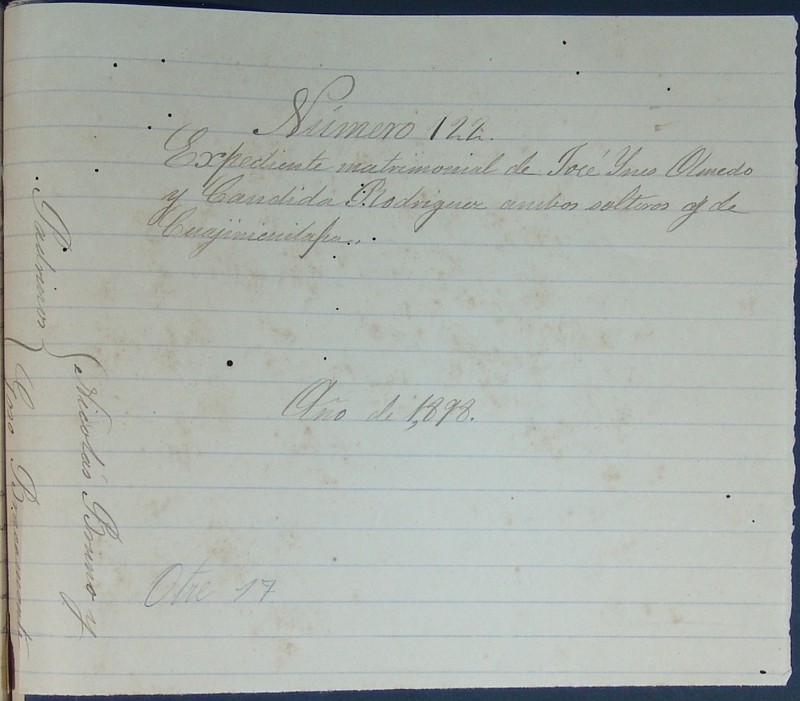 Número 122.
Expediente matrimonial de José Ynes Olmedo
y Candida Rodriguez ambos solteros y de
Cuajinicuilapa.
Año de 1,898.
Otre 17
Padrinos
Nicolás Bruno y